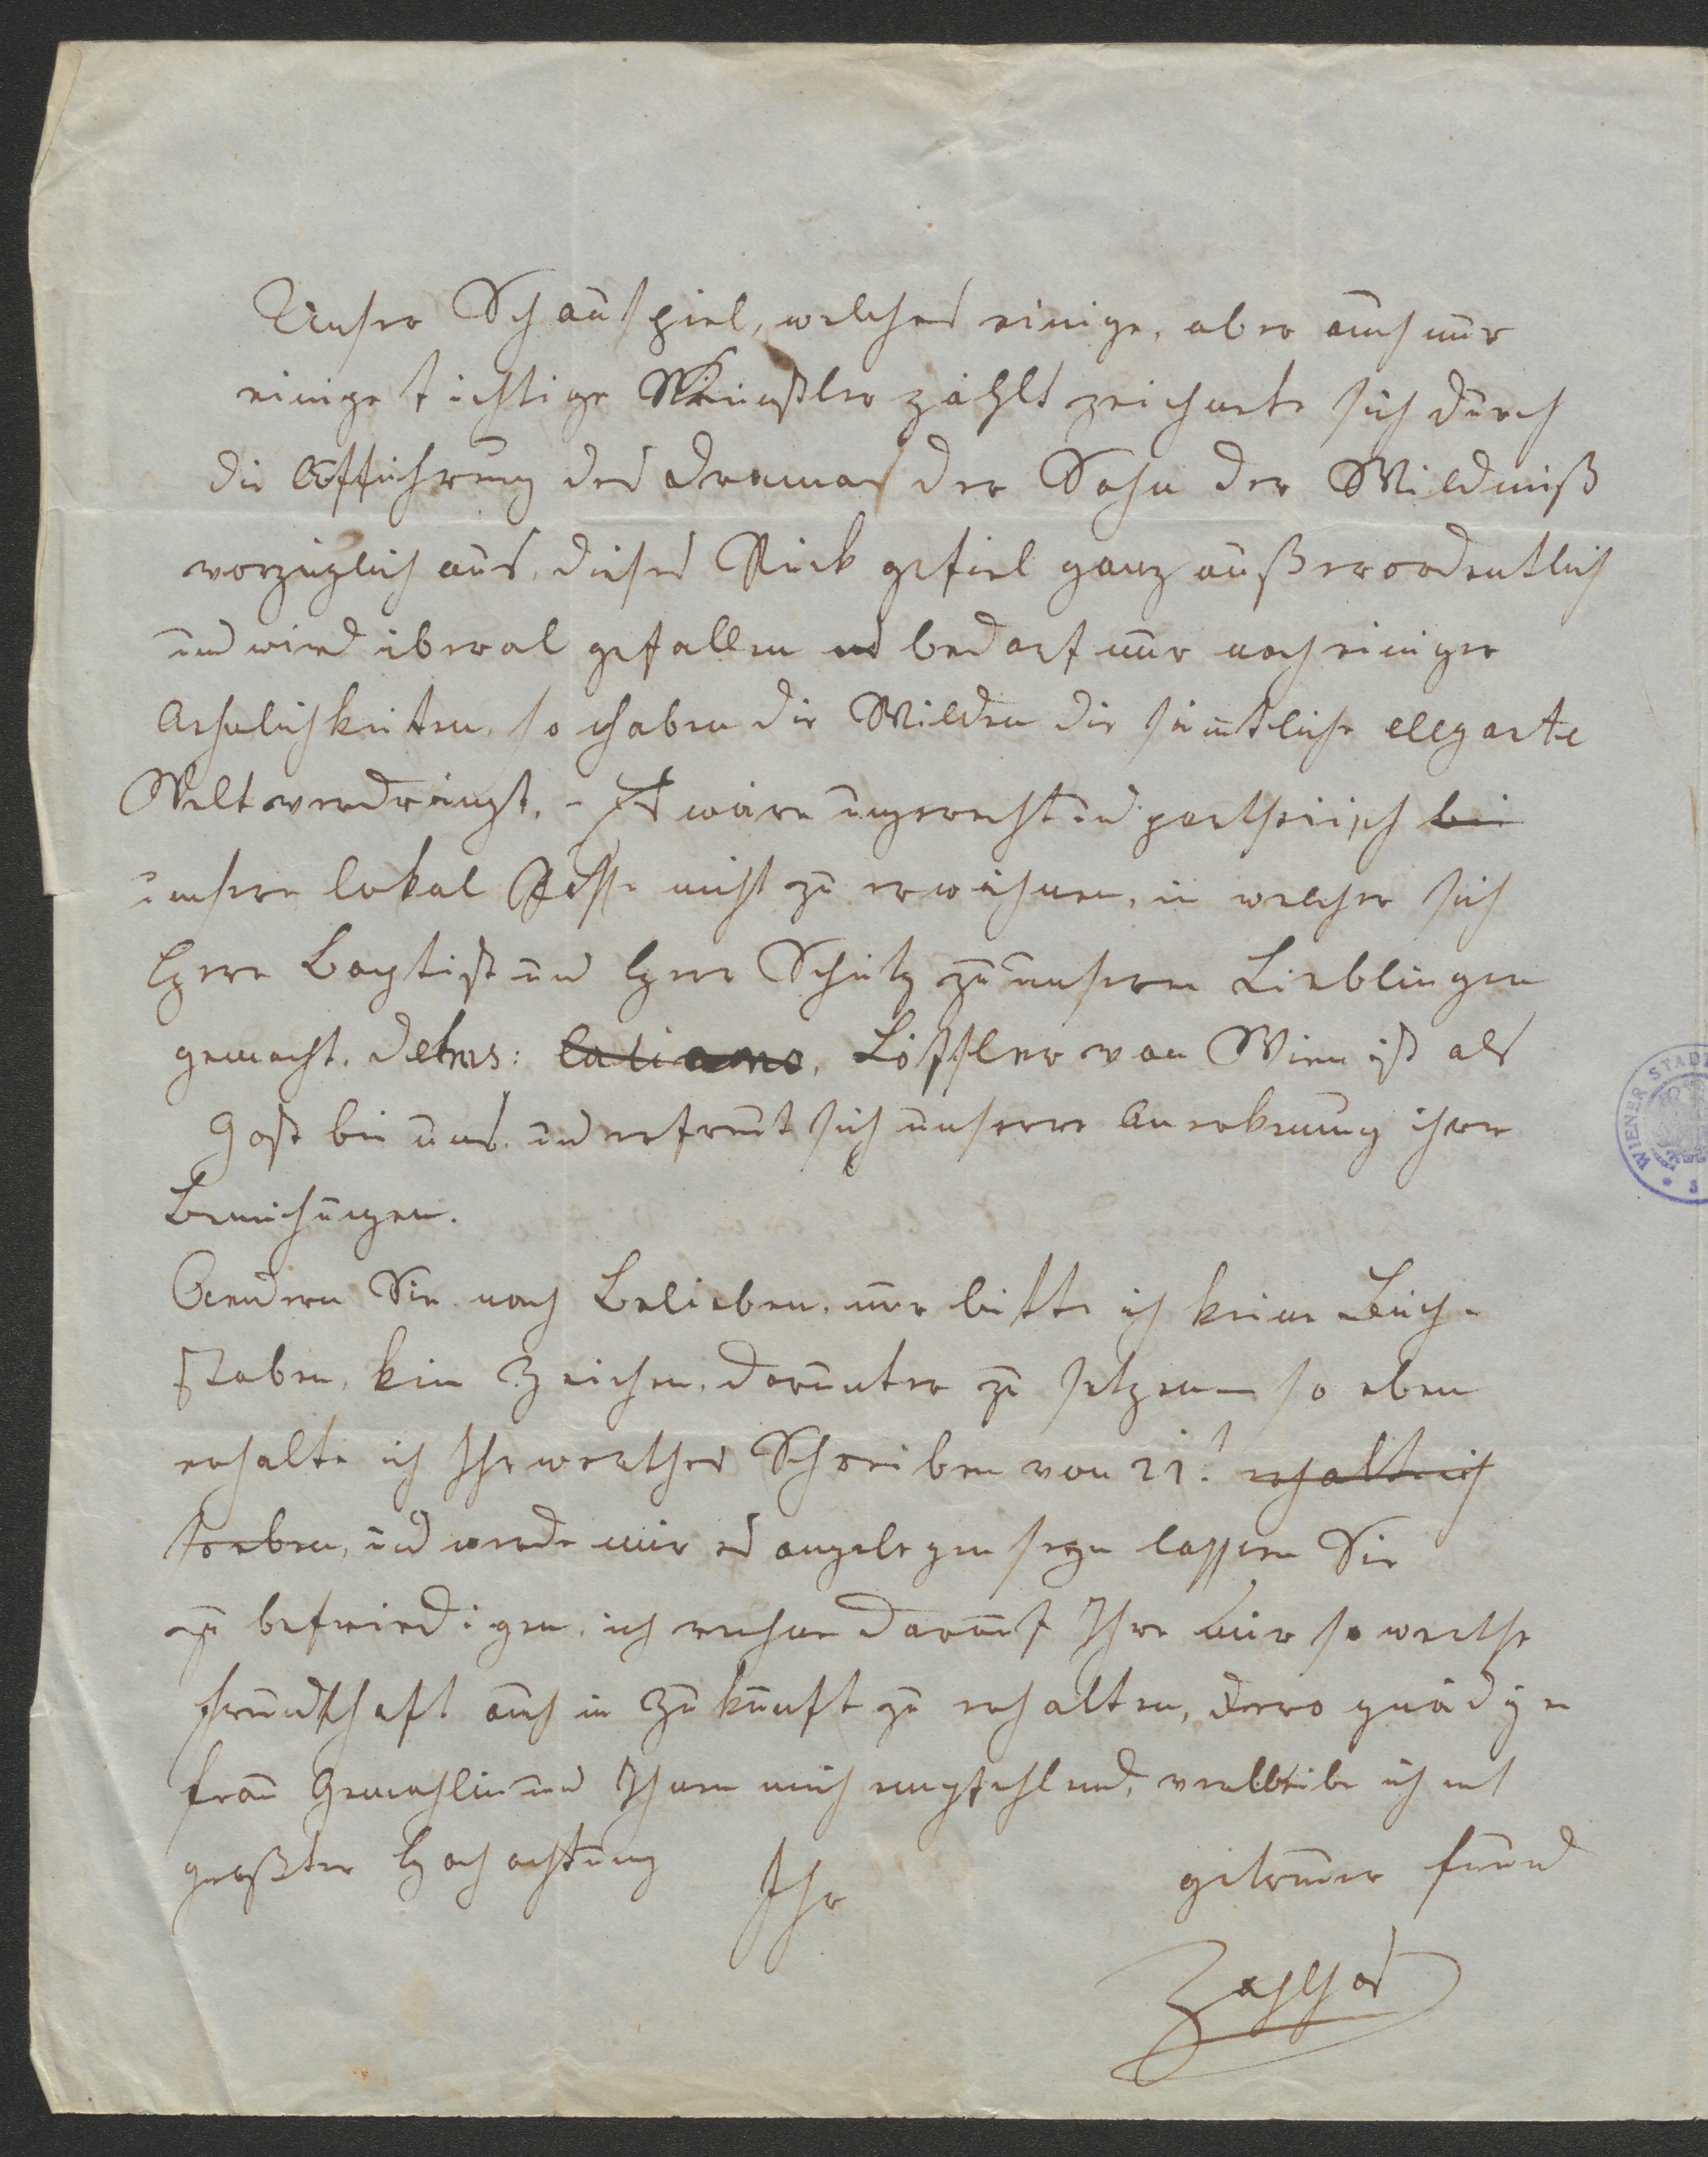 Unser Schauspiel, welches einige, aber auch nur
einige tichtige Künstler zählt zeichnete sich durch
die Aufführung des Dramas der Sohn der Wildniß
vorzüglich aus, dieses Stück gefiel ganz außerordentlich
und wird überal gefallen und bedarf nur noch einiger
Aehnlichkeiten, so haben die Wilden die sämtliche elegante
Welt verdrängt. – Es wäre ungerecht und partheiisch bei
unsere lokal Posse nicht zu erwähnen, in welcher sich
Herr Baptist und Herr Schütz zu unseren Lieblingen
gemacht. Löffler von Wien ist als
Gast bei uns und erfreut sich unserer Anerkenung ihrer
Bemühungen.
Aendern Sie nach Belieben, nur bitte ich keine Buch-
staben, kein Zeichen, darunter zu setzen – so eben
erhalte ich Ihr werthes Schreiben von 21t erhalte ich
soeben, und werde mir es angelegen seyn lassen Sie
zu befriedigen, ich rechne darauf Ihre mir so werthe
Freundschaft auch in Zukunft zu erhalten, dero gnädigen
Frau Gemahlin und Ihnen mich empfehlend, verbleibe ich mit
größter Hochachtung Ihr getreuer Freund
WIENER STADT